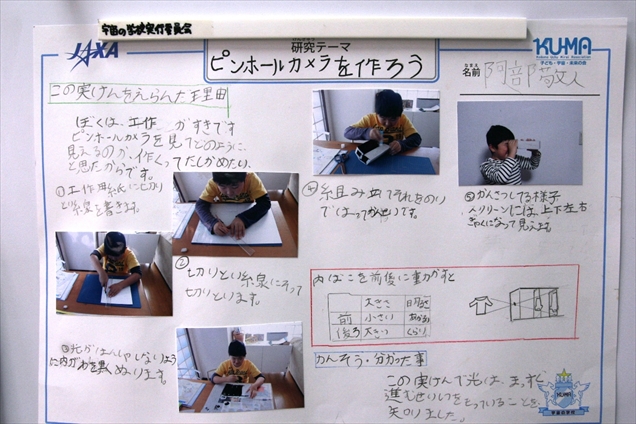 宇宙の学校実行委員会
JAXA
研究テーマ
ピンホールカメラを作ろう
KU-MA
子ども・宇宙・未来の会
名前
この実けんをえらんだ理由
ぼくは、工作がすきです
ピンホールカメラを見てどのように、
見えるのか、作くってたしかめたい、
と思たからです。
①工作用紙に切り
と線を書きます。
②
切りとり線にそって
切りといます。
③光がはんしゃしないように
内がわを黒くぬります。
④組み立ててそれをのり
ではってかんせいです。
⑤かんさつしてる様子
スクリーンには、上下左右
ぎゃくになって見えます。
内ばこを前後に動かすと
大きさ 明るさ
前 小さい あかるい
後ろ 大きい くらい
かんそう・分かった事
この実けんで光は、まっすぐ
進むせいしつをもっていることを、
矢のりました。
KU-MA
宇宙の学校